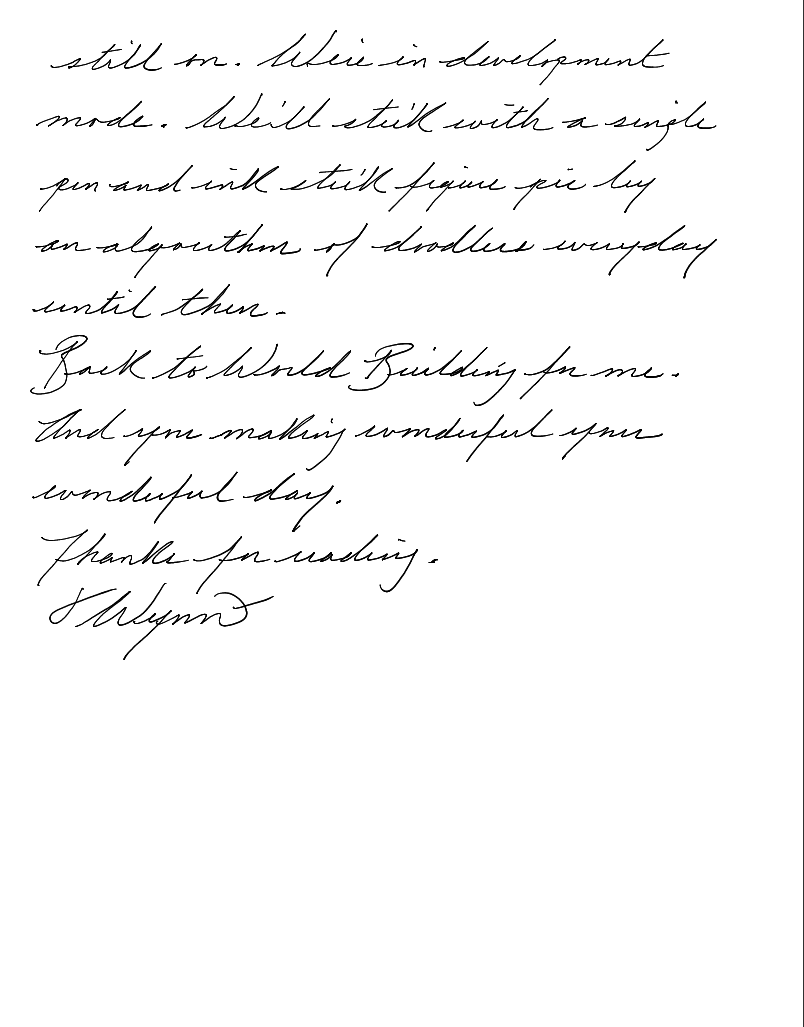 still on. We're in development
mode. We'll stick with a single
pen and ink stick figure pic by
an algorithm of doodlers everyday
until then.
Back to World Building for me.
And you making wonderful your
wonderful day.
Thanks for reading.
Wynn